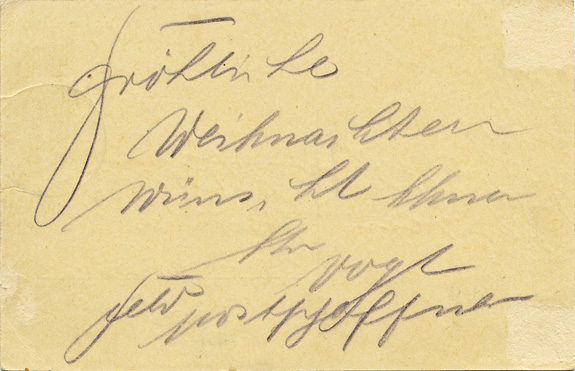 Fröhliche
Weihnachten
wünscht Ihnen
Ihr Vogt
Feld